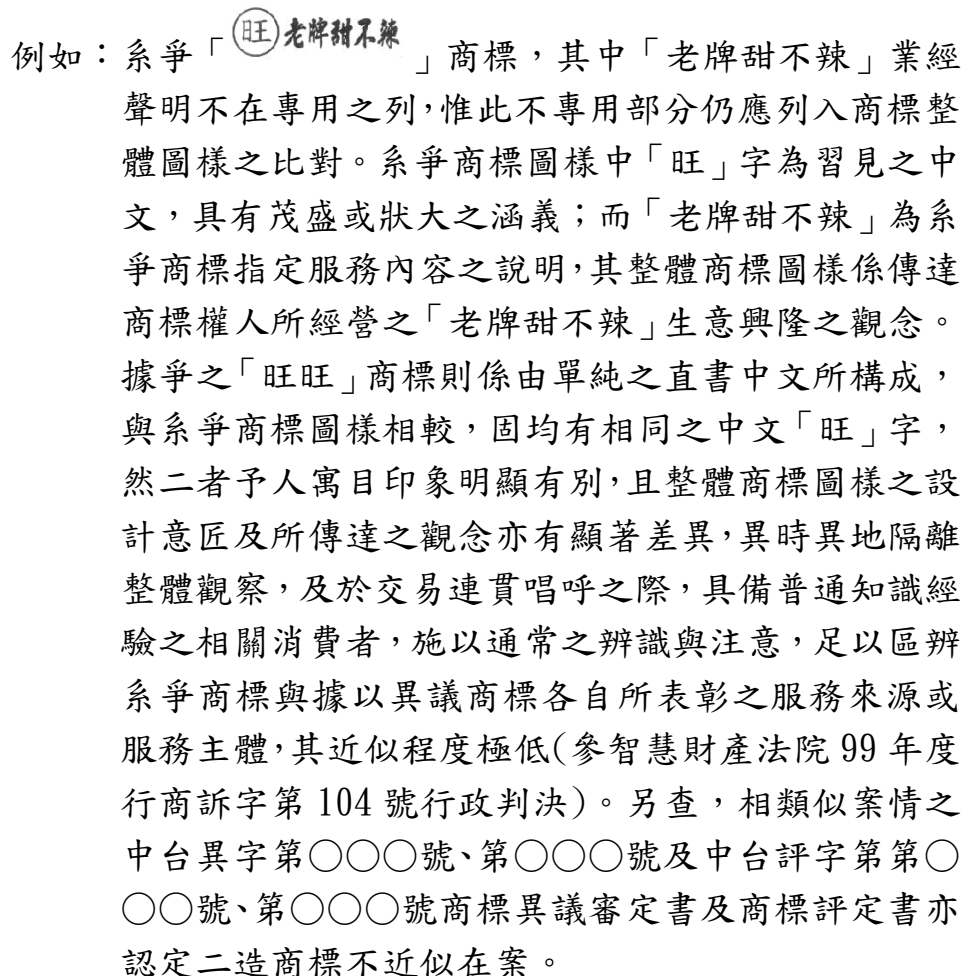 例如：系爭「㊣旺老牌甜不辣」商標，其中「老牌甜不辣」業經
聲明不在專用之列，惟此不專用部分仍應列入商標整
體圖樣之比對。系爭商標圖樣中「旺」字為習見之中
文，具有茂盛或狀大之涵義；而「老牌甜不辣」為系
爭商標指定服務內容之說明，其整體商標圖樣係傳達
商標權人所經營之「老牌甜不辣」生意興隆之觀念。
據爭之「旺旺」商標則係由單純之直書中文所構成，
與系爭商標圖樣相較，固均有相同之中文「旺」字，
然二者予人寓目印象明顯有別，且整體商標圖樣之設
計意匠及所傳達之觀念亦有顯著差異，異時異地隔離
整體觀察，及於交易連貫唱呼之際，具備普通知識經
驗之相關消費者，施以通常之辨識與注意，足以區辨
系爭商標與據以異議商標各自所表彰之服務來源或
服務主體，其近似程度極低(參智慧財產法院 99 年度
行商訴字第 104 號行政判決)。另查，相類似案情之
中台異字第○○○號、第○○○號及中台評字第第○
○○號、第○○○號商標異議審定書及商標評定書亦
認定二造商標不近似在案。